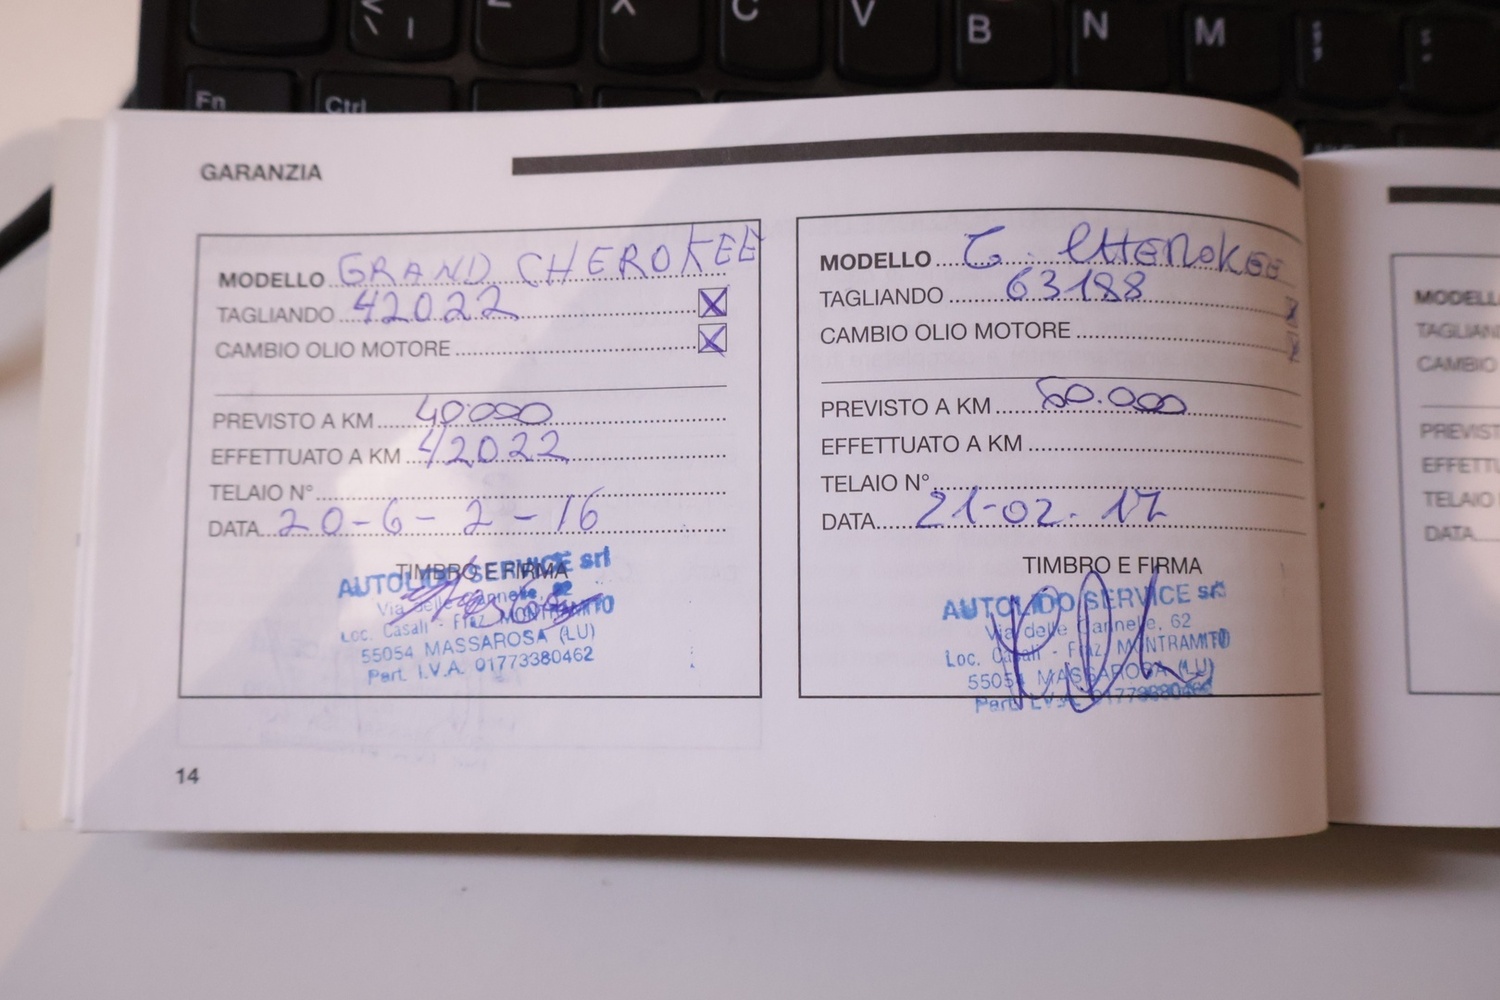 Z X C V B N M
Fn Ctrl
GARANZIA
MODELLO GRAND CHEROKEE
TAGLIANDO 42022
CAMBIO OLIO MOTORE
PREVISTO A KM 40.000
EFFETTUATO A KM 42022
TELAIO N°
DATA 20-6-2-16
TIMBRO E FIRMA
AUTOLIDO SERVICE srl
Via delle Cannelle, 62
Loc. Casali - Fraz. MONTRAMITO
55054 MASSAROSA (LU)
Part. I.V.A. 01773380462
14
MODELLO G. CHEROKEE
TAGLIANDO 63188
CAMBIO OLIO MOTORE
PREVISTO A KM 60.000
EFFETTUATO A KM
TELAIO N°
DATA 21-02-17
TIMBRO E FIRMA
AUTOLIDO SERVICE srl
Via delle Cannelle, 62
Loc. Casali - Fraz. MONTRAMITO
55054 MASSAROSA (LU)
Part. I.V.A. 01773380462
MODELL
TAGLIAN
CAMBIO
PREVIST
EFFETTU
TELAIO
DATA